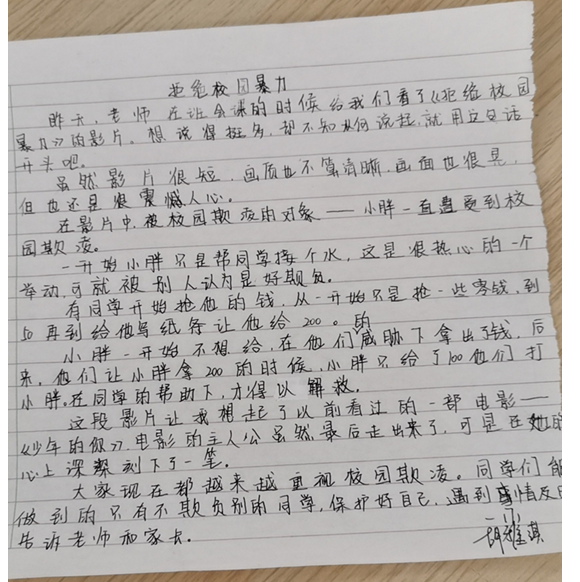 拒绝校园暴力
昨天,老师在班会课的时候给我们看了《拒绝校园
暴力》的影片。想说得挺多,却不知从何说起,就用这句话
开头吧。
虽然影片很短,画质也不算清晰,画面也很晃,
但也还是很震撼人心。
在影片中,被校园欺凌的对象——小胖一直遭受到校
园欺凌。
一开始小胖只是帮同学接个水,这是很热心的一个
举动,可就被别人认为是好欺负。
有同学开始抢他的钱,从一开始只是抢一些零钱,到
50再到给他写纸条让他给200。的
小胖一开始不想给,在他们威胁下拿出了钱,后
来,他们让小胖拿200的时候,小胖只给了100他们打
小胖。在同学的帮助下,才得以解救。
这段影片让我想起了以前看过的一部电影——
《少年的你》,电影的主人公虽然最后走出来了,可是在她的
心上深深刻下了一笔。
大家现在都越来越重视校园欺凌。同学们能
做到的只有不欺负别的同学,保护好自己,遇到事情及时
告诉老师和家长。
胡雅淇